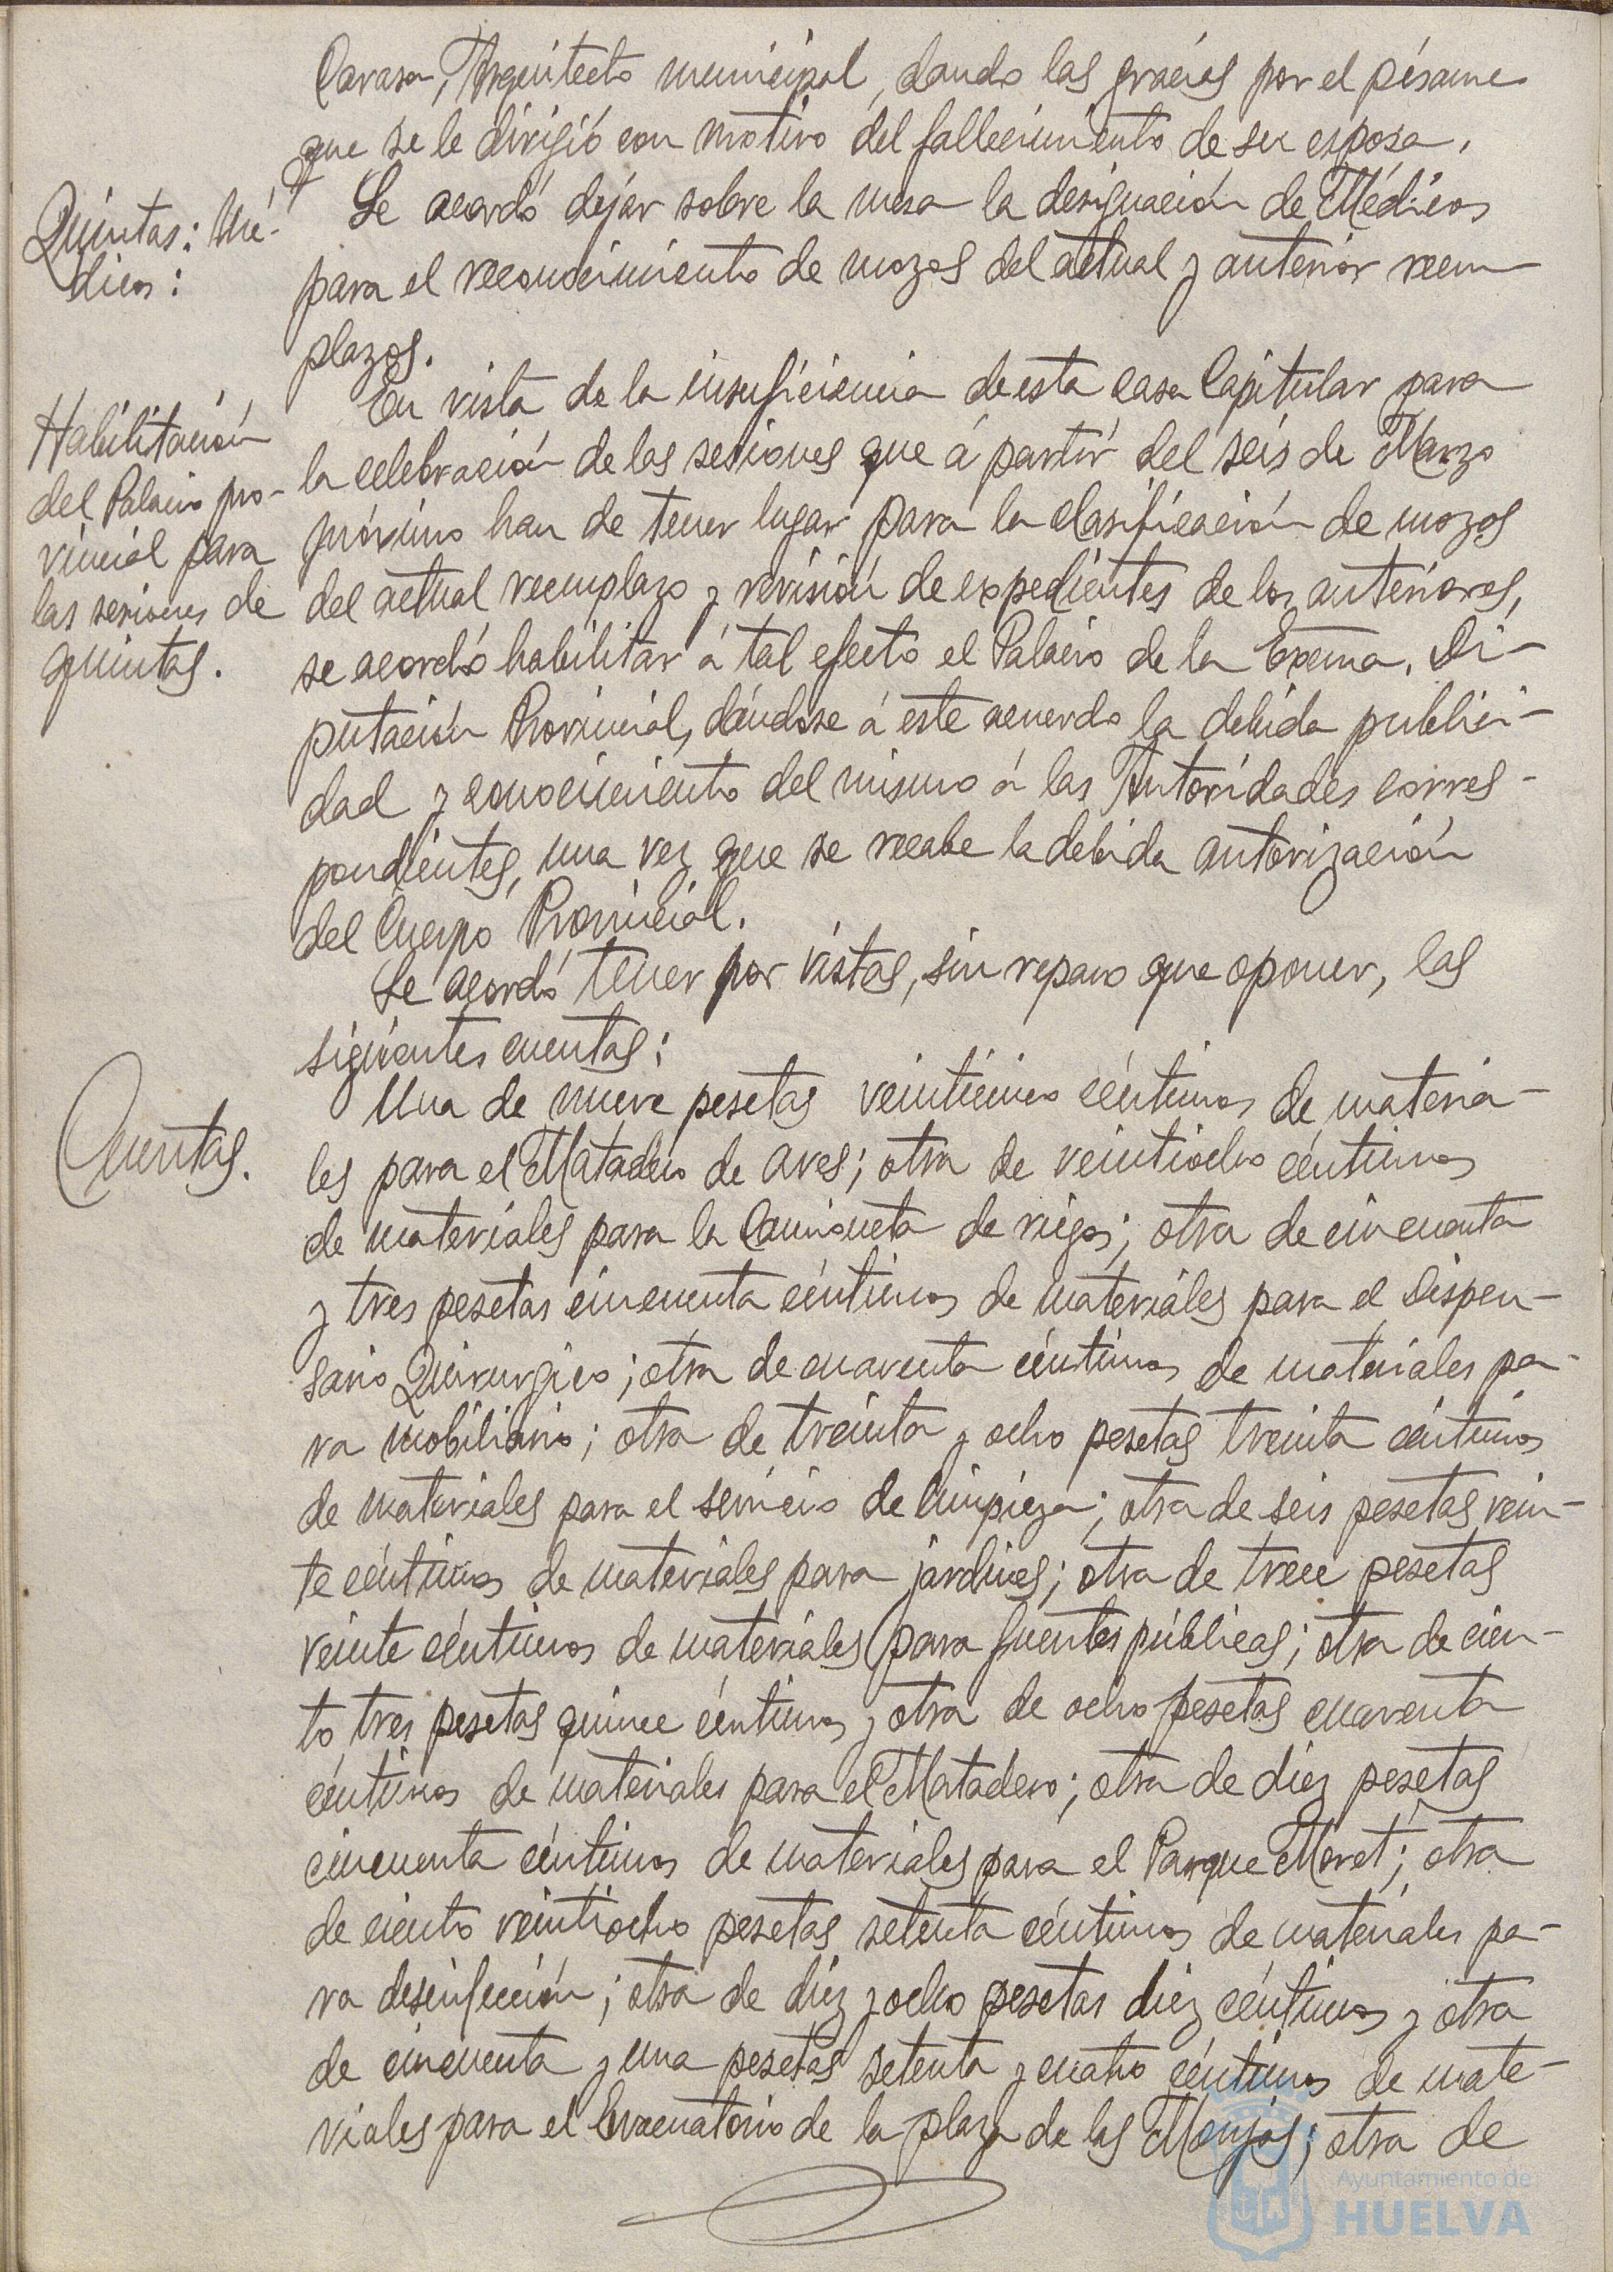 Carasa, Arquitecto municipal, dando las gracias por el pésame
que se le dirigió con motivo del fallecimiento de su esposa.
Quintas: Mé-
dicos:
Se acordó dejar sobre la mesa la designación de Médicos
para el reconocimiento de mozos del actual y anterior reem
plazos.
Habilitación
del Palacio pro-
vincial para
las sesiones de
quintas.
En vista de la insuficiencia de esta casa Capitular para
la celebración de las sesiones que á partir del seis de Marzo
próximo han de tener lugar para la clasificación de mozos
del actual reemplazo y revisión de expedientes de los anteriores,
se acordó habilitar á tal efecto el Palacio de la Excma. Di-
putación Provincial, dándose á este acuerdo la debida publici-
dad y conocimiento del mismo á las Autoridades corres-
pondientes, una vez que se recabe la debida autorización
del Cuerpo Provincial.
Se acordó tener por vistas, sin reparo que oponer, las
siguientes cuentas:
Cuentas.
Una de nueve pesetas veinticinco céntimos de materia-
les para el Matadero de aves; otra de veintiocho céntimos
de materiales para la Camioneta de riegos; otra de cincuenta
y tres pesetas cincuenta céntimos de materiales para el Dispen-
sario Quirurgico; otra de cuarenta céntimos de materiales pa-
ra mobiliario; otra de treinta y ocho pesetas treinta céntimos
de materiales para el servicio de limpieza; otra de seis pesetas vein-
te céntimos de materiales para jardines; otra de trece pesetas
veinte céntimos de materiales para fuentes públicas; otra de cien-
to tres pesetas quince céntimos y otra de ocho pesetas cuarenta
céntimos de materiales para el Matadero; otra de diez pesetas
cincuenta céntimos de materiales para el Parque Moret; otra
de ciento veintiocho pesetas setenta céntimos de materiales pa-
ra desinfección; otra de diez y ocho pesetas diez céntimos y otra
de cincuenta y una pesetas setenta y cuatro céntimos de mate-
riales para el Evacuatorio de la plaza de las Monjas; otra de
Ayuntamiento de
HUELVA